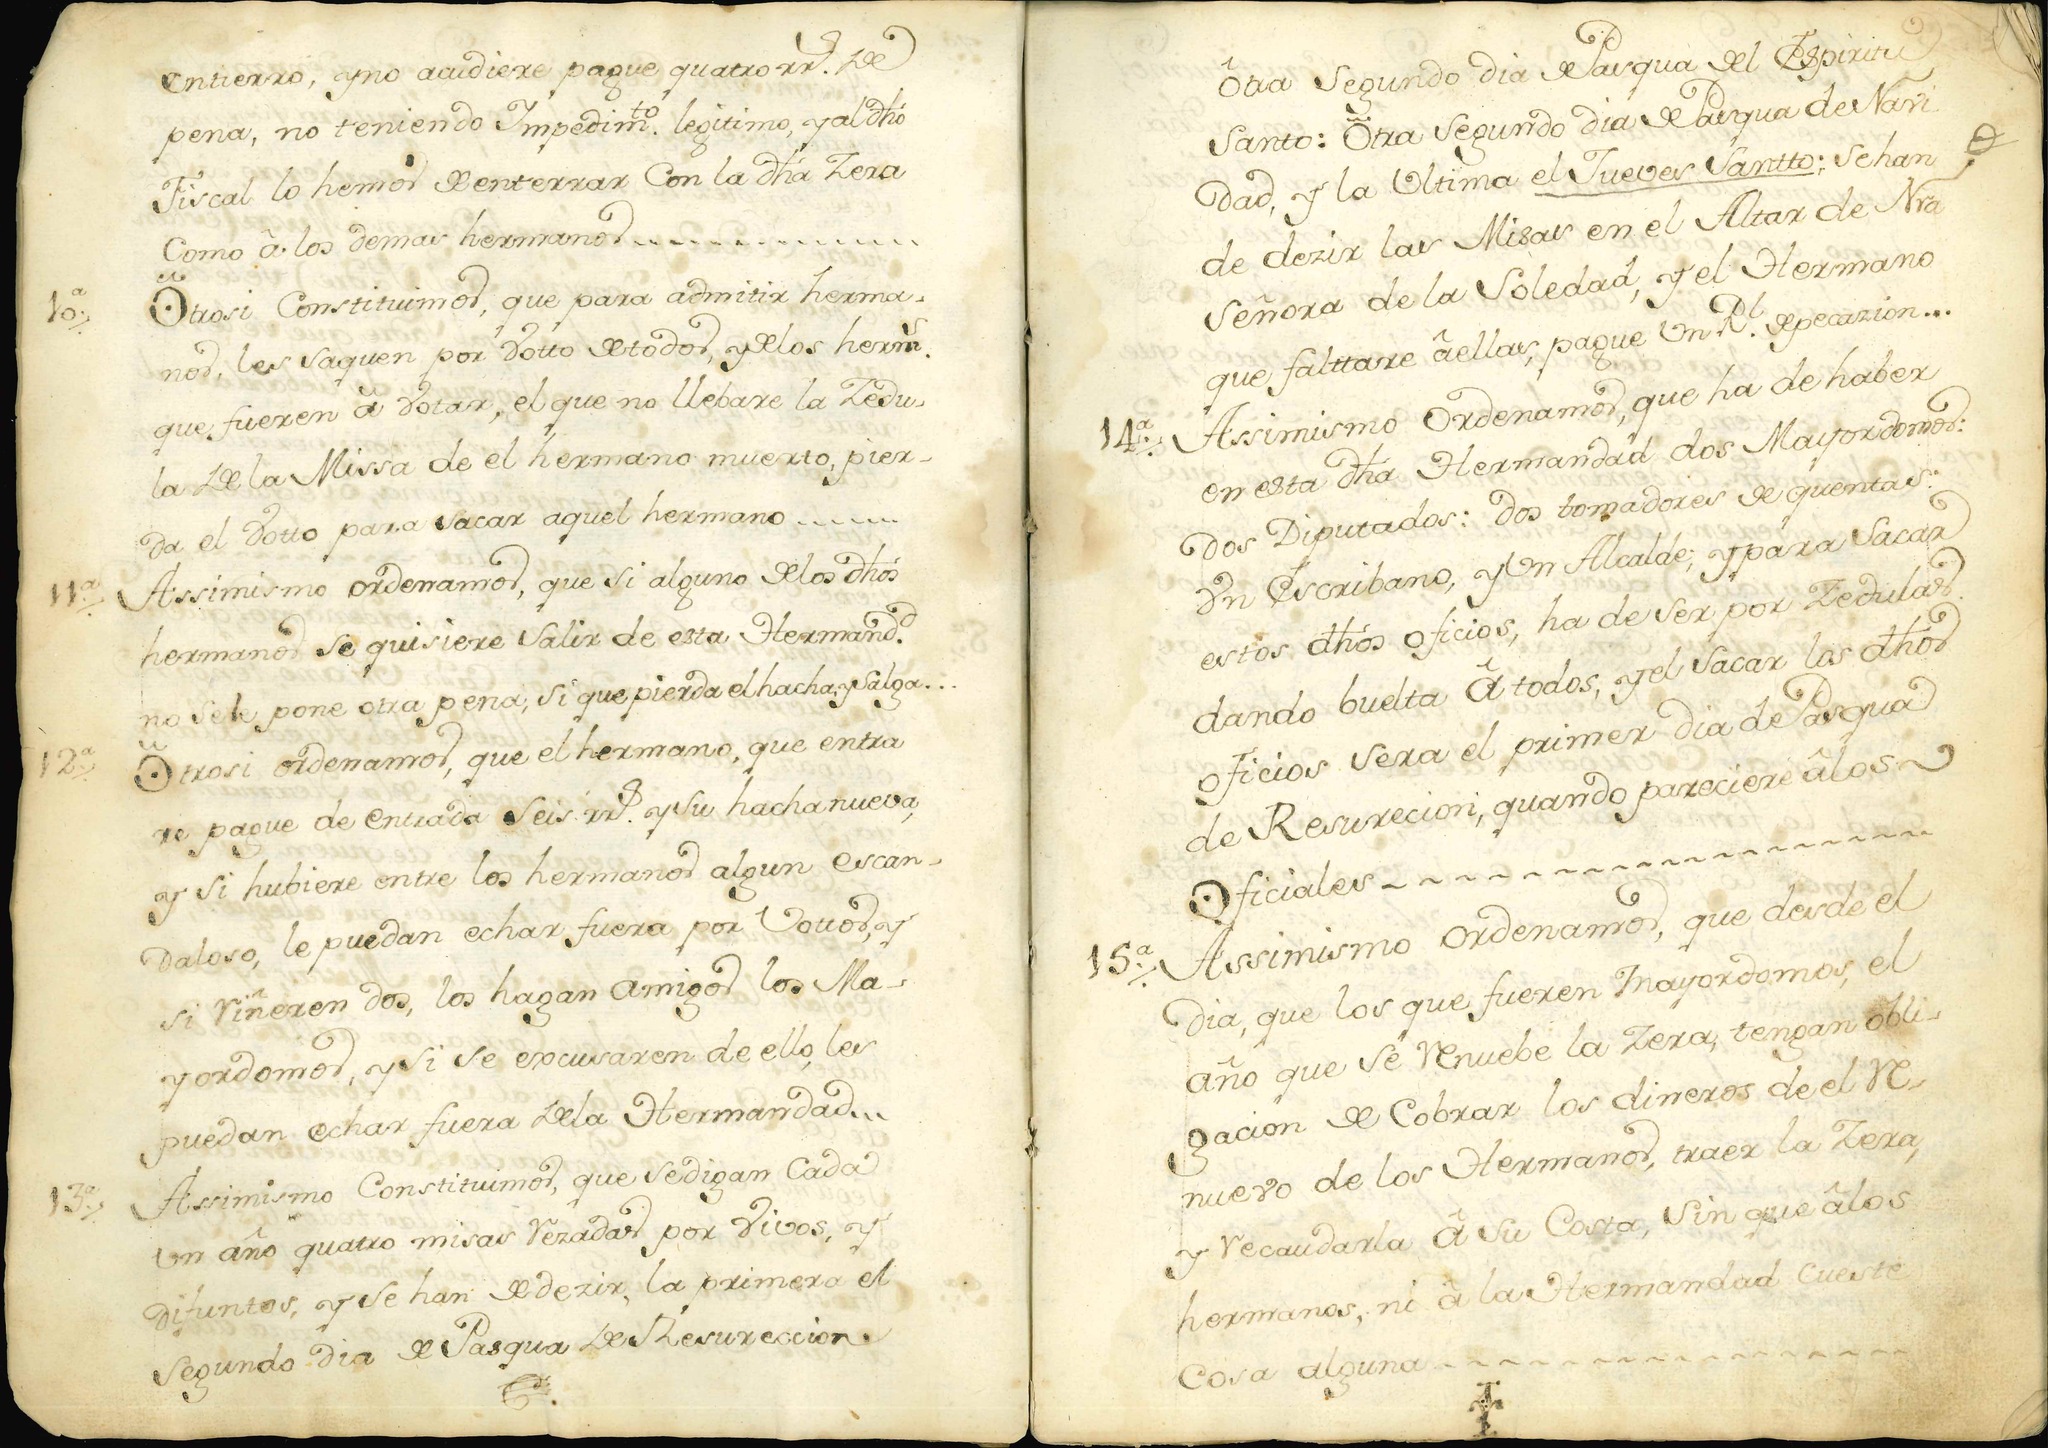 entierro, y no acudiere pague quatro rr.s de
pena, no teniendo Impedim.to legitimo, y al dho
Fiscal lo hemos de enterrar Con la dha Zera
Como â los demas hermanos
10.a Otrosi Constituimos, que para admitir herma-
nos, les saquen por votto de todos, y de los herm.s
que fueren â votar, el que no llebare la Zedu-
la de la Missa de el hermano muerto, pier-
da el Votto para sacar aquel hermano
11.a Assimismo ordenamos, que si alguno de los dhos
hermanos se quisiere salir de esta Hermand.d
no sele pone otra pena, si que pierda el hacha, y salga...
12.a Otrosi ordenamos, que el hermano, que entra
re pague de entrada seis rr.s y su hacha nueva,
y si hubiere entre los hermanos algun escan-
daloso, le puedan echar fuera por Vottos, y
si riñeren dos, los hagan amigos los Ma-
yordomos, y si se excusaren de ello, les
puedan echar fuera de la Hermandad...
13.a Assimismo Constituimos, que se digan Cada
un año quatro misas rezadas por vivos, y
difuntos, y se han de dezir, la primera el
segundo dia de Pasqua de Resureccion.
ôtra segundo dia de Pasqua del Espiritu
Santo: Otra segundo dia de Pasqua de Navi
dad, y la Ultima el Jueves Santto; se han
de dezir las Misas en el Altar de Nra
señora de la Soledad, y el Hermano
que falttare âellas, pague Un R.l de pecazion...
14.a Assimismo Ordenamos, que ha de haber
en esta dha Hermandad dos Mayordomos:
dos Diputados: dos tomadores de quentas:
Un Escribano, y Un Alcalde; y para Sacar
estos dhos oficios, ha de ser por Zedulas
dando buelta â todos, y el sacar los dhos
oficios sera el primer dia de Pasqua
de Resurecion, quando pareciere âlos
Oficiales
15.a Assimismo Ordenamos, que desde el
dia, que los que fueren Mayordomos, el
año que se renuebe la Zera, tengan obli-
gacion de Cobrar los dineros de el re-
nuevo de los Hermanos, traer la Zera,
y recaudarla â su Costa, sin que âlos
hermanos, ni â la Hermandad cueste
Cosa alguna